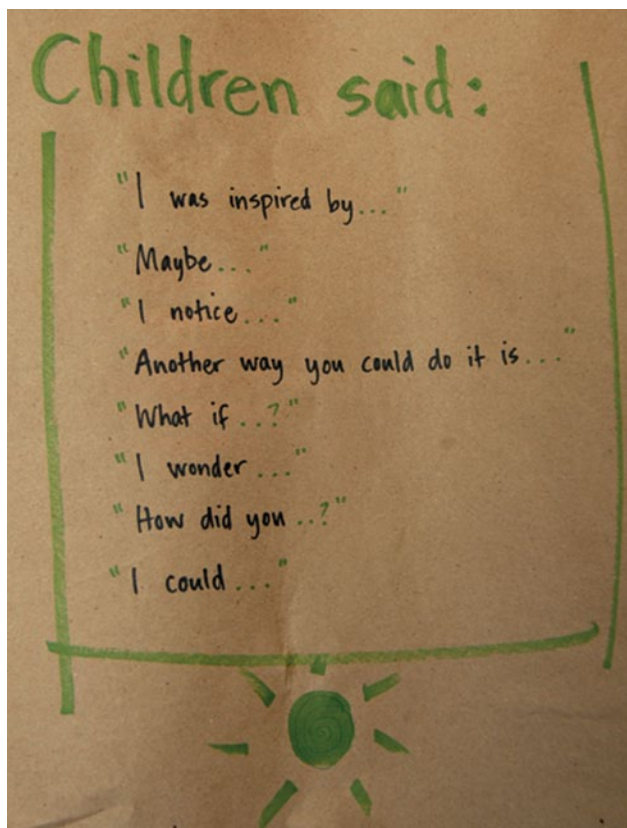 Children said:
"I was inspired by..."
"Maybe..."
"I notice..."
"Another way you could do it is..."
"What if...?"
"I wonder..."
"How did you ..?"
"I could..."